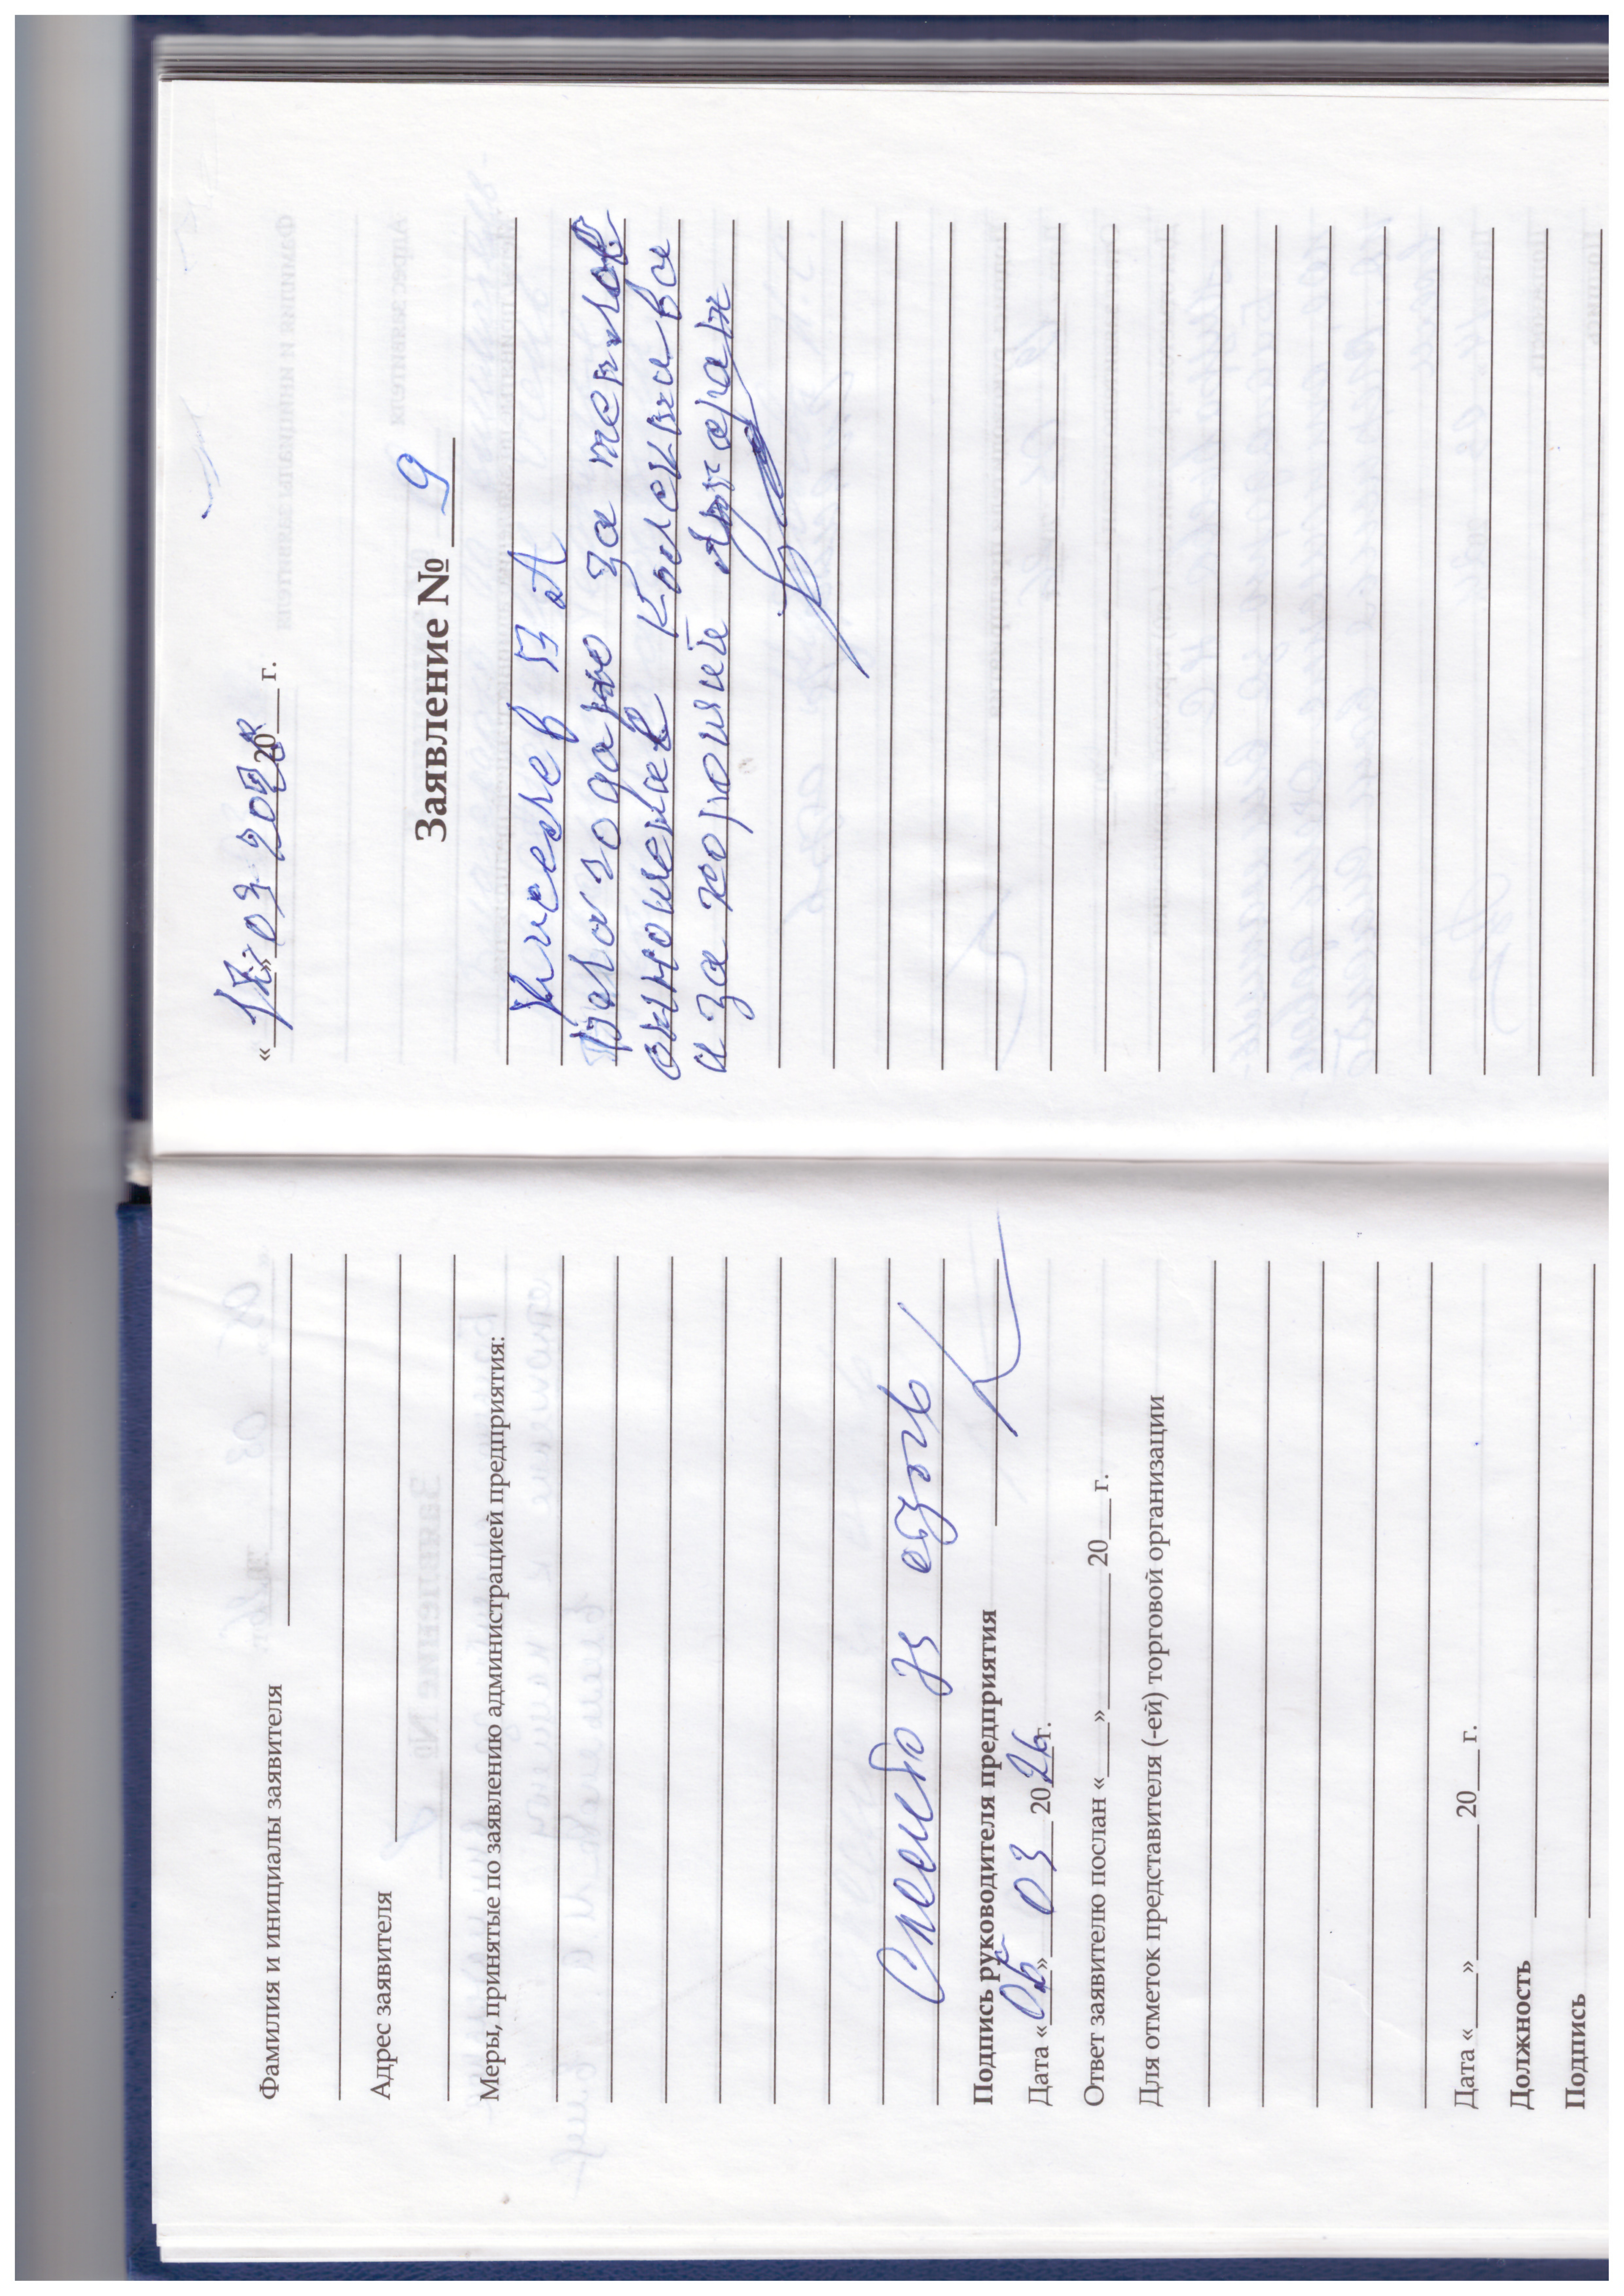 Фамилия и инициалы заявителя
Адрес заявителя
Меры, принятые по заявлению администрацией предприятия:
Спасибо за отзыв
Подпись руководителя предприятия
Дата « 05 » 03 2026 г.
Ответ заявителю послан « » 20 г.
Для отметок представителя (-ей) торговой организации
Дата « » 20 г.
Должность
Подпись
« 17 » 03 2026 20 г.
Заявление № 9
Киселев В А
Благодарю за теплое
отношение Колектива все
и за хороший